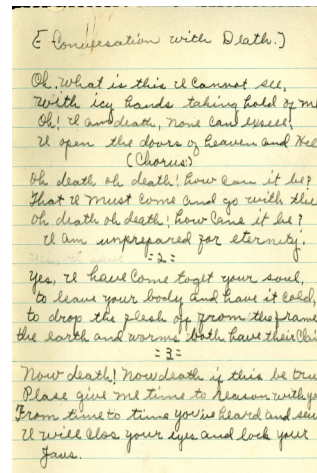 [Conversation with Death.]
Oh, what is this I Cannot see,
With icy hands taking hold of me
Oh! I am death, none can excell,
I open the doors of heaven and Hell
(Chorus:)
Oh death oh death! how can it be?
That I must come and go with thee
oh death oh death! how Cane it be?
I am unprepared for eternity.
=2=
Yes, I have Come toget your soul,
to leave your body and have it cold,
to drop the flesh off from the frame
the earth and worms both have their Clai
=3=
Now death! Now death if this be tru
Plase give me time to reason with yo
From time to time you've heard and see
I will clos your iyes and lock your
Jaus.